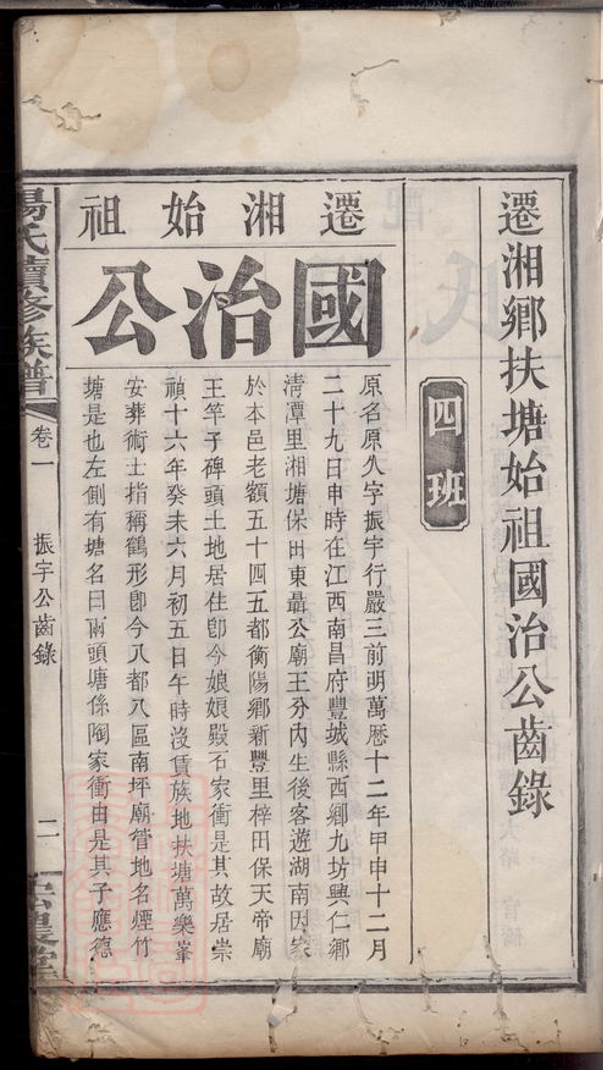 遷湘鄉扶塘始祖國治公齒錄
四班
遷湘始祖
國治公
原名原久字振宇行嚴三前明萬曆十二年甲申十二月
二十九日申時在江西南昌府豐城縣西鄉九坊興仁鄉
清潭里湘塘保田東聶公廟王分內生後客遊湖南因家
於本邑老額五十四五都衡陽鄉新豐里梓田保天帝廟
王竿子碑頭土地居住卽今娘娘殿石家衝是其故居崇
禎十六年癸未六月初五日午時沒賃族地扶塘萬樂峯
安葬術士指稱鶴形卽今八都八區南坪廟管地名煙竹
塘是也左側有塘名曰兩頭塘係陶家衝由是其子應德
楊氏續修族譜
卷一
振宇公齒錄
二